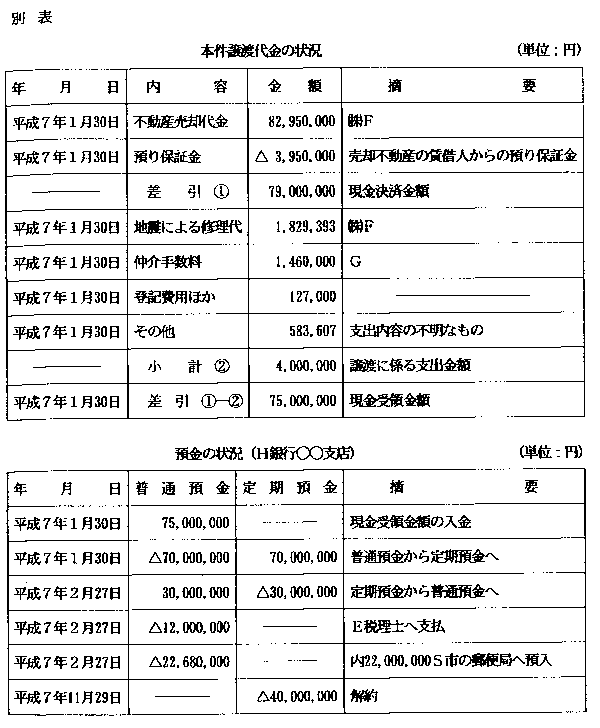 別 表
本件譲渡代金の状況 (単位:円)
年 月 日 内 容 金 額 摘 要
平成7年1月30日 不動産売却代金 82,950,000 ㈱F
平成7年1月30日 預り保証金 △ 3,950,000 売却不動産の賃借人からの預り保証金
――― 差 引 ① 79,000,000 現金決済金額
平成7年1月30日 地震による修理代 1,829,393 ㈱F
平成7年1月30日 仲介手数料 1,460,000 G
平成7年1月30日 登記費用ほか 127,000 ―――
平成7年1月30日 その他 583,607 支出内容の不明なもの
――― 小 計 ② 4,000,000 譲渡に係る支出金額
平成7年1月30日 差 引 ①-② 75,000,000 現金受領金額
預金の状況(H銀行○○支店) (単位:円)
年 月 日 普 通 預 金 定 期 預 金 摘 要
平成7年1月30日 75,000,000 ――― 現金受領金額の入金
平成7年1月30日 △70,000,000 70,000,000 普通預金から定期預金へ
平成7年2月27日 30,000,000 △30,000,000 定期預金から普通預金へ
平成7年2月27日 △12,000,000 ――― E税理士へ支払
平成7年2月27日 △22,680,000 ――― 内22,000,000S市の郵便局へ預入
平成7年11月29日 ――― △40,000,000 解約